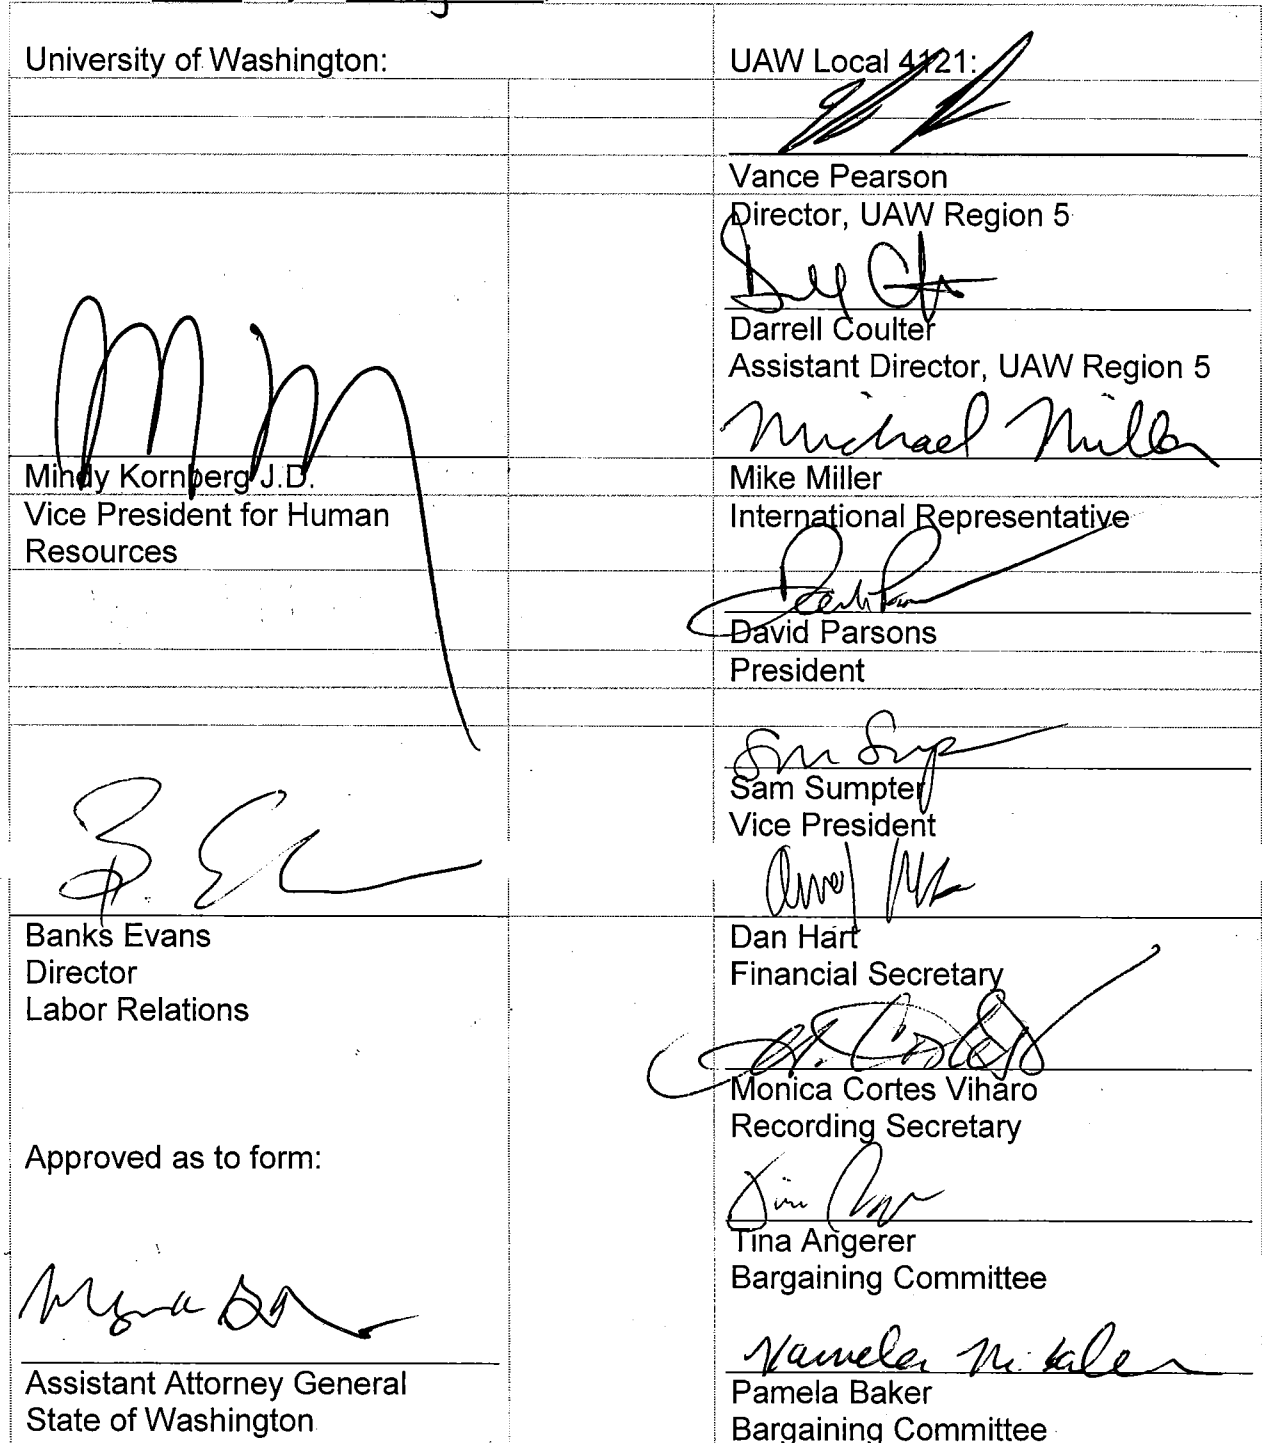 University of Washington:
Mindy Kornberg J.D.
Vice President for Human
Resources
Banks Evans
Director
Labor Relations
Approved as to form:
Assistant Attorney General
State of Washington
UAW Local 4121:
Vance Pearson
Director, UAW Region 5
Darrell Coulter
Assistant Director, UAW Region 5
Michael Miller
Mike Miller
International Representative
David Parsons
President
Sam Sumpter
Vice President
Dan Hart
Financial Secretary
Monica Cortes Viharo
Recording Secretary
Tina Angerer
Bargaining Committee
Pamela Baker
Bargaining Committee